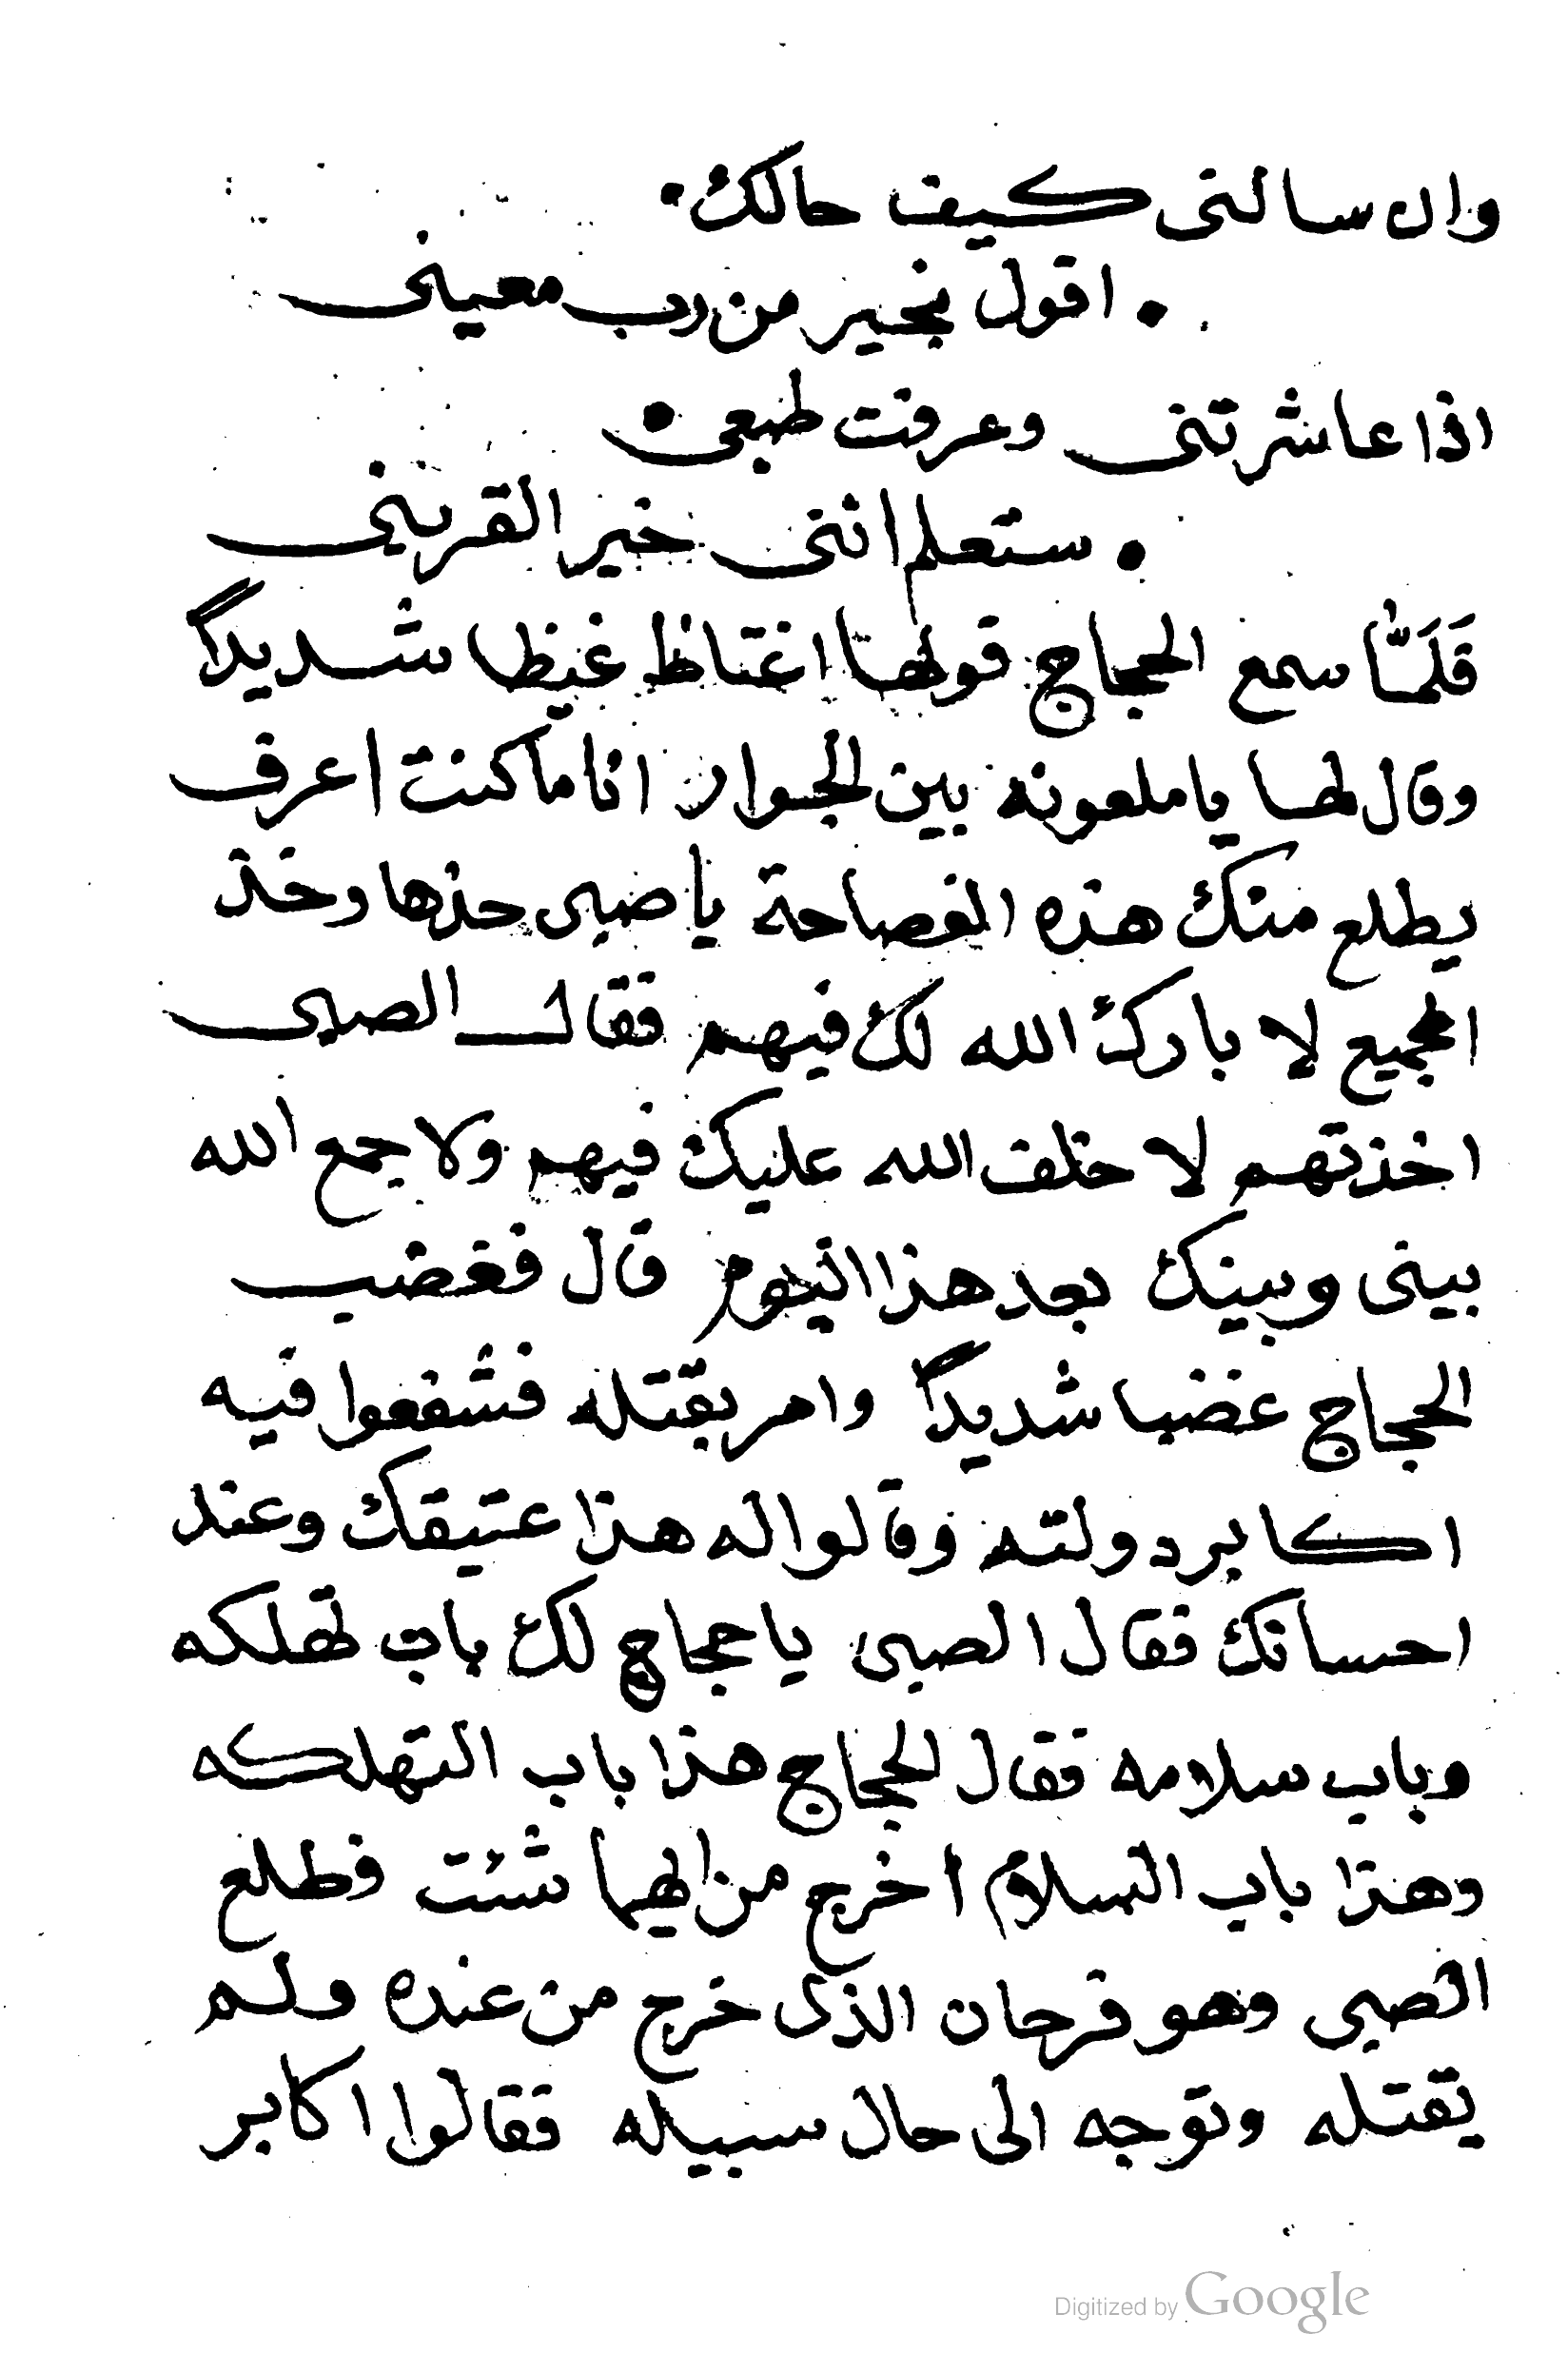 وان سالتنى كيف حالك •
• اقول بخير من رب معينى
اذا عاشرتنى وعرفت طبعى •
• ستعلم اننى خير القرينى
فَلَمَّا سمع الحجاج قولها اغتاظ غيظا شديداً
وقال لها يا ملعونه بين الجوار انا ما كنت اعرف
يطلع منك هذه الفصاحة يا صبى خذها وخذ
الجميع لا بارك الله لك فيهم فقال الصبى
اخذتهم لا خلف الله عليك فيهم ولا يجمع الله
بينى وبينك بعد هذا اليوم قال فغضب
الحجاج غضبا شديداً وامر بقتله فشفعوا فيه
اكابر دولته وقالوا له هذا عتيقك وعند
احسانك فقال الصبى يا حجاج لك باب تهلكه
وباب سلامه فقال الحجاج هذا باب التهلكه
وهذا باب السلام اخرج من ايهما شئت فطلع
الصبى وهو فرحان الذى خرج من عنده ولم
يقتله وتوجه الى حال سبيله فقالوا اكابر
Digitized by Google